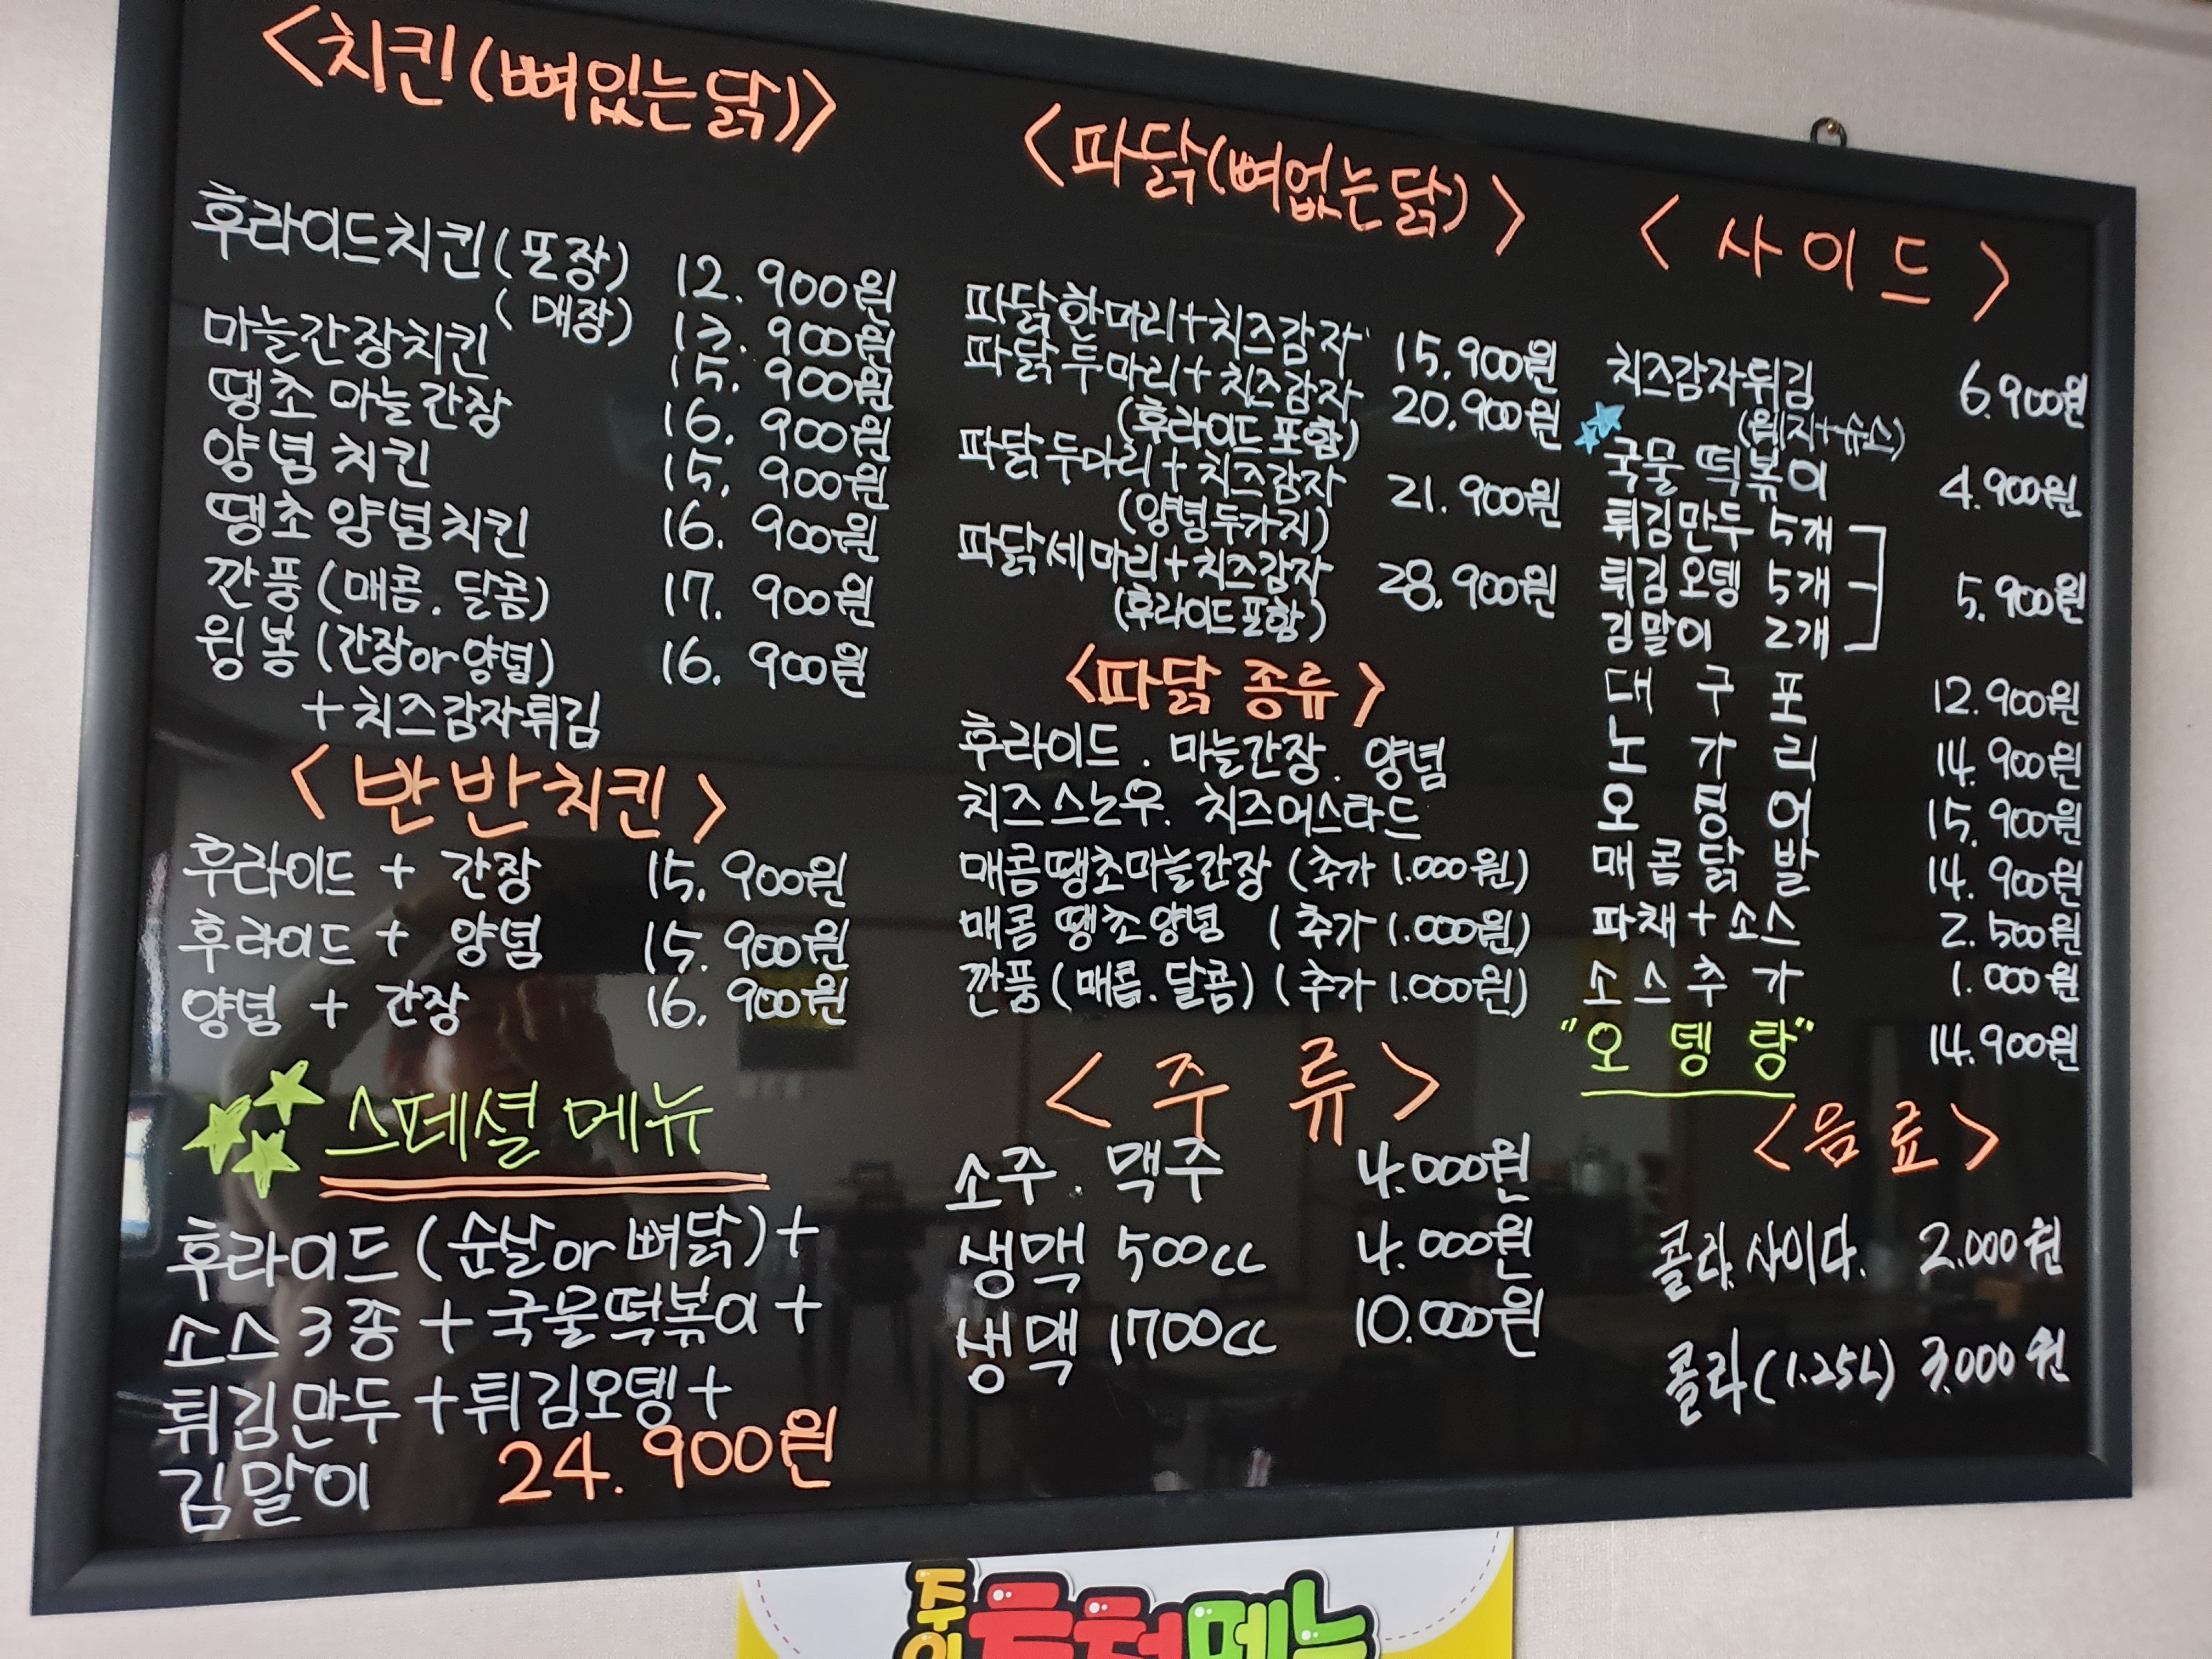 <치킨(뼈있는닭)>
후라이드치킨(포장) 12.900원
(매장) 13.900원
마늘간장치킨 15.900원
땡초마늘간장 16.900원
양념치킨 15.900원
땡초양념치킨 16.900원
깐풍(매콤.달콤) 17.900원
윙봉(간장or양념) 16.900원
+치즈감자튀김
<반반치킨>
후라이드 + 간장 15.900원
후라이드 + 양념 15.900원
양념 + 간장 16.900원
스페셜 메뉴
후라이드(순살or뼈닭)+
소스3종+국물떡볶이+
튀김만두+튀김오뎅+
김말이 24.900원
<파닭(뼈없는닭)>
파닭한마리+치즈감자 15.900원
파닭두마리+치즈감자 20.900원
(후라이드포함)
파닭두마리+치즈감자 21.900원
(양념두가지)
파닭세마리+치즈감자 28.900원
(후라이드포함)
<파닭 종류>
후라이드. 마늘간장. 양념
치즈스노우. 치즈머스타드
매콤땡초마늘간장 (추가 1.000원)
매콤 땡초양념 (추가 1.000원)
깐풍(매콤.달콤) (추가 1.000원)
<주류>
소주. 맥주 4.000원
생맥 500cc 4.000원
생맥 1700cc 10.000원
<사이드>
치즈감자튀김 6.900원
국물떡볶이 4.900원
튀김만두 5개
튀김오뎅 5개 5.900원
김말이 2개
대구포 12.900원
노가리 14.900원
오징어 15.900원
매콤닭발 14.900원
파채+소스 2.500원
소스추가 1.000원
"오뎅탕" 14.900원
<음료>
콜라.사이다. 2.000원
콜라(1.25L) 3.000원